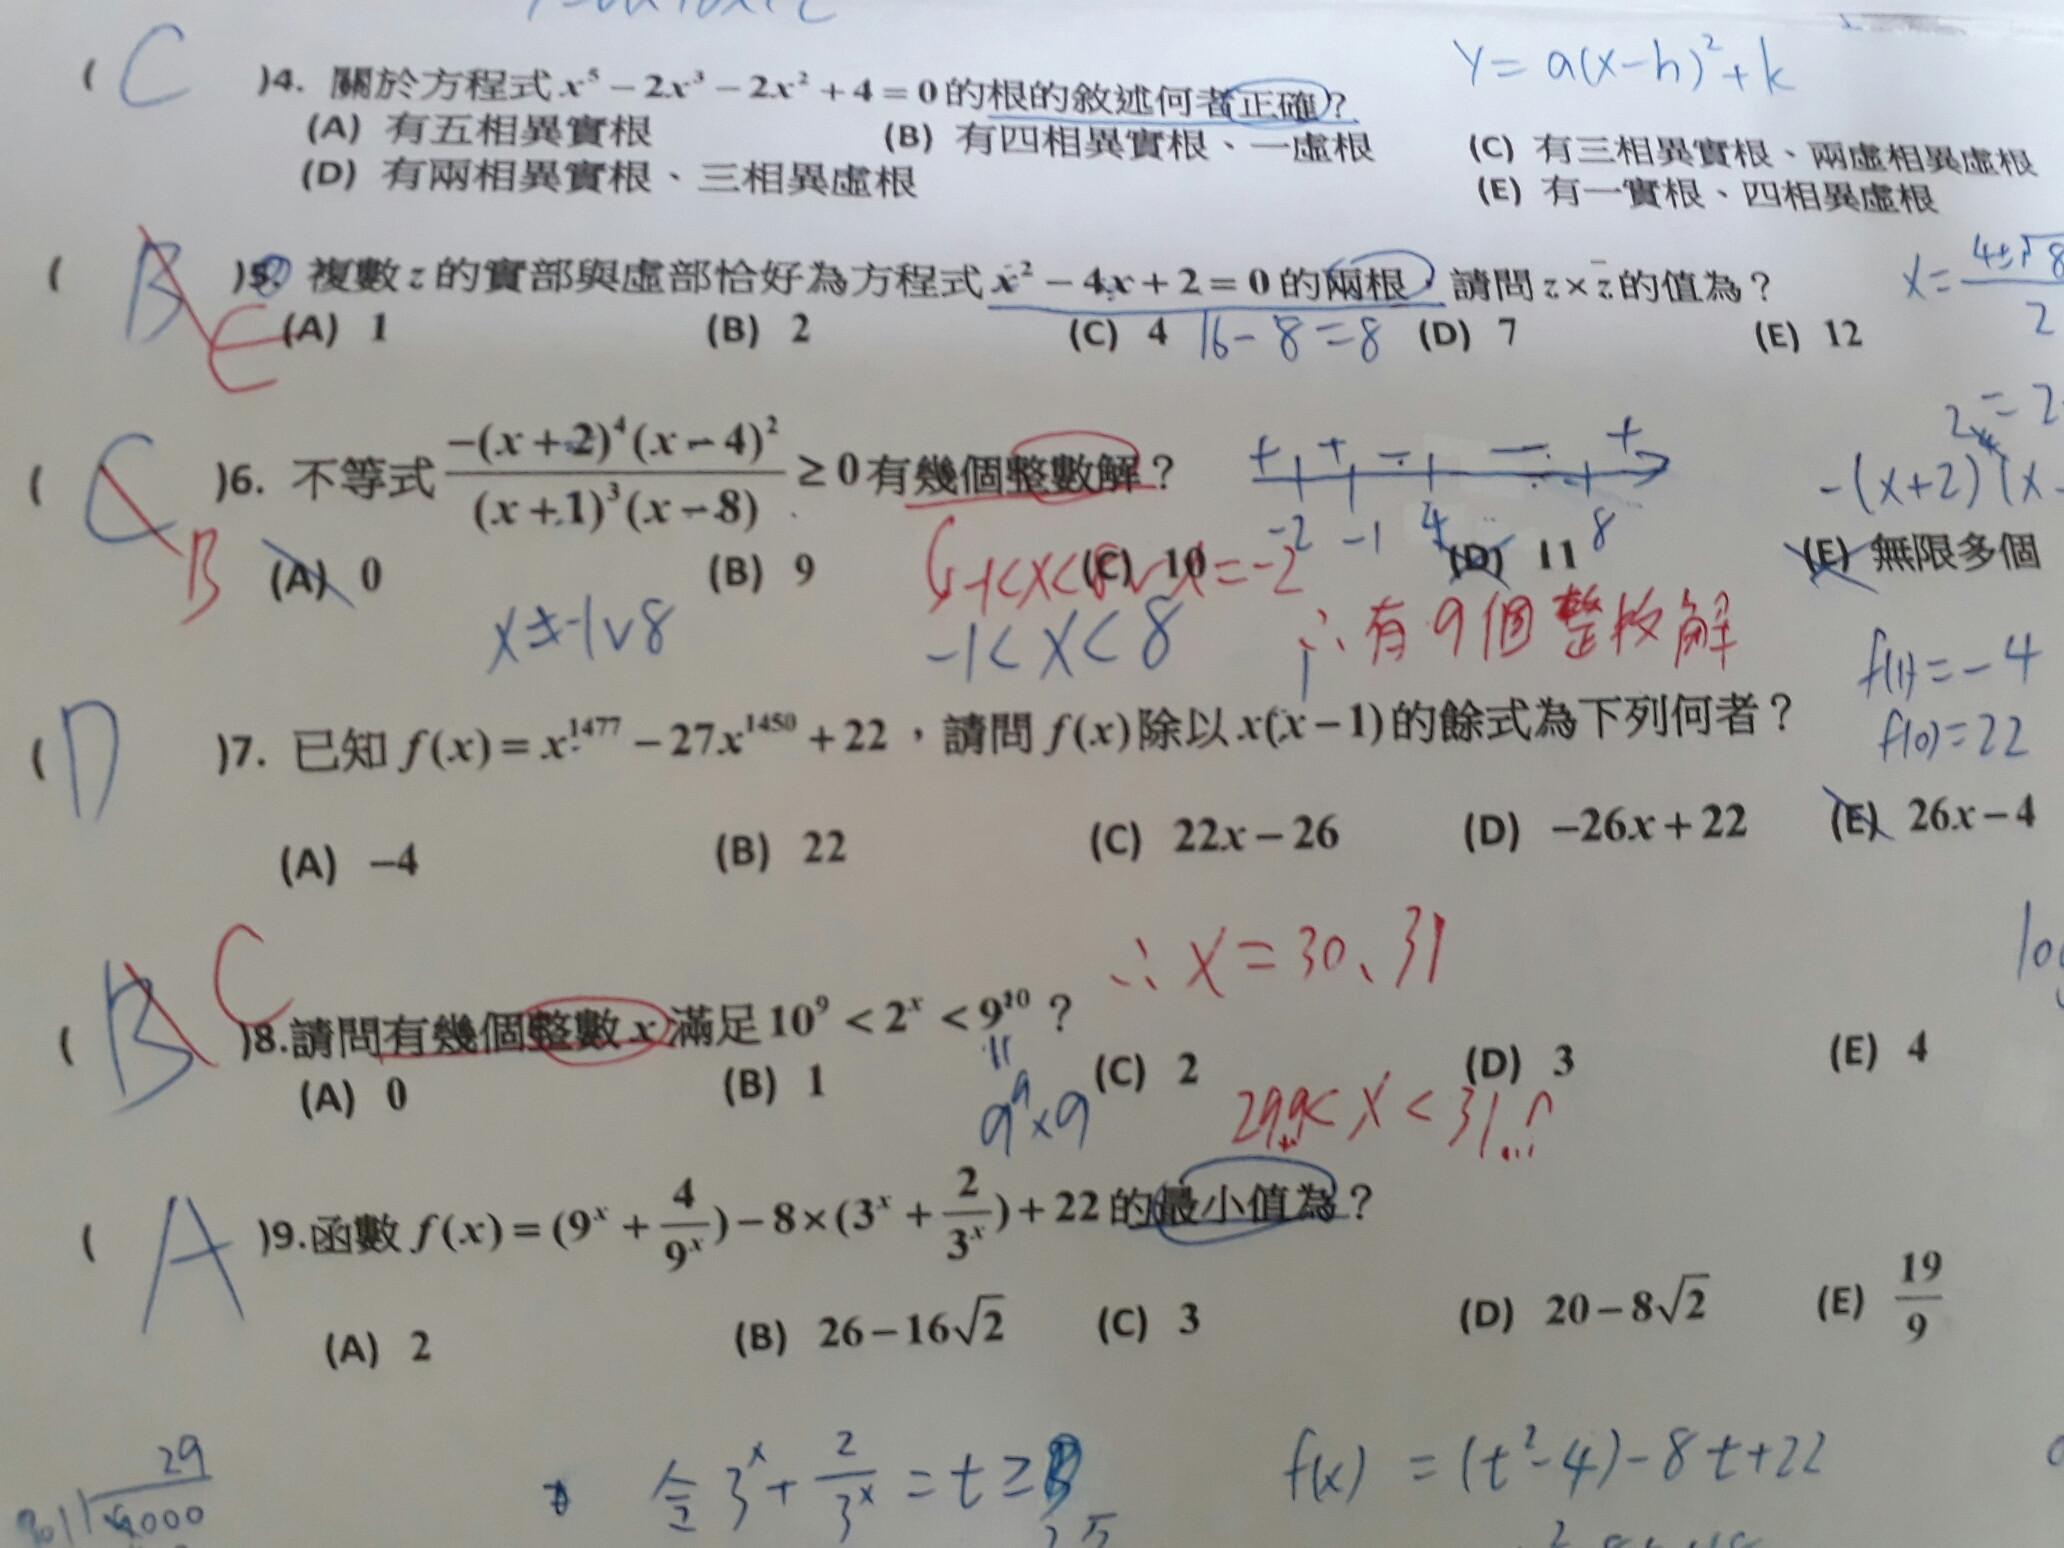 C
y = a(x-h)²+k
( )4. 關於方程式 x⁵ − 2x³ − 2x² + 4 = 0 的根的敘述何者正確？
(A) 有五相異實根 (B) 有四相異實根、一虛根 (C) 有三相異實根、兩虛相異虛根
(D) 有兩相異實根、三相異虛根 (E) 有一實根、四相異虛根
B E
( )5. 複數 z 的實部與虛部恰好為方程式 x² − 4x + 2 = 0 的兩根，請問 z × z̄ 的值為？
x = (4±√8)/2
(A) 1 (B) 2 (C) 4 (D) 7 (E) 12
16-8=8
C B
( )6. 不等式 −(x+2)⁴(x−4)² / (x+1)³(x−8) ≥ 0 有幾個整數解？
+ + - - +
-2 -1 4 8
-(x+2) (x-
(A) 0 (B) 9 (C) 10 (D) 11 (E) 無限多個
-1<x<8 ∨ x=-2
x≠-1∨8
-1<x<8
∴有9個整數解
f(1)=-4
f(0)=22
D
( )7. 已知 f(x) = x¹⁴⁷⁷ − 27x¹⁴⁵⁰ + 22，請問 f(x) 除以 x(x−1) 的餘式為下列何者？
(A) −4 (B) 22 (C) 22x − 26 (D) −26x + 22 (E) 26x − 4
∴ x = 30、31
B C
( )8.請問有幾個整數 x 滿足 10⁹ < 2ˣ < 9¹⁰？
(A) 0 (B) 1 (C) 2 (D) 3 (E) 4
9⁹×9
29.9 < x < 31...
A
( )9.函數 f(x) = (9ˣ + 4/9ˣ) − 8×(3ˣ + 2/3ˣ) + 22 的最小值為？
(A) 2 (B) 26 − 16√2 (C) 3 (D) 20 − 8√2 (E) 19/9
29
令 3ˣ + 2/3ˣ = t ≥
f(x) = (t²-4)-8t+22